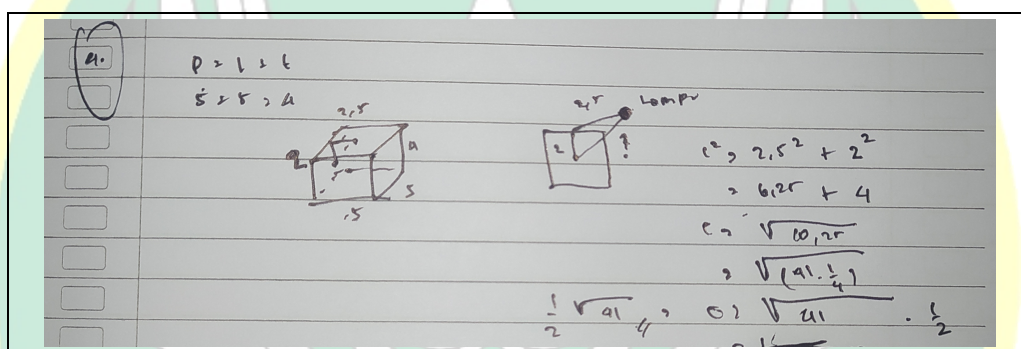 4.
p : l : t
5 : 5 : 4
2,5
2
4
5
.5
2,5 Lampu
2 ?
c² = 2,5² + 2²
= 6,25 + 4
c = √10,25
= √(41 . 1/4)
1/2 √41
= √41 . 1/2